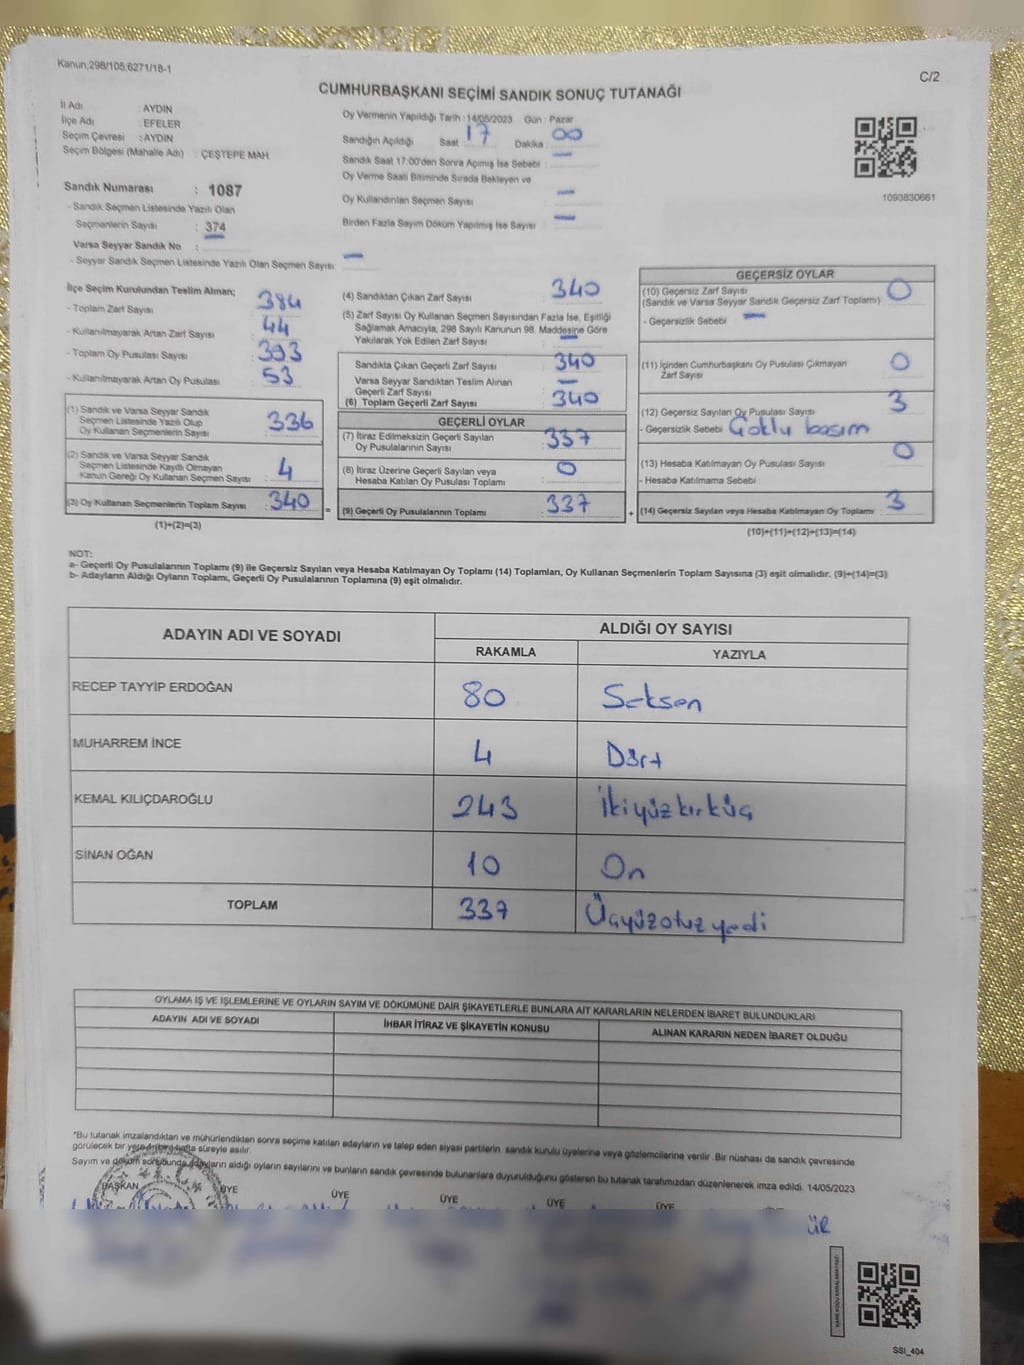 Kanun;298/105;6271/18-1
C/2
CUMHURBAŞKANI SEÇİMİ SANDIK SONUÇ TUTANAĞI
İl Adı : AYDIN
İlçe Adı : EFELER
Seçim Çevresi : AYDIN
Seçim Bölgesi (Mahalle Adı) : ÇEŞTEPE MAH
Sandık Numarası : 1087
- Sandık Seçmen Listesinde Yazılı Olan
Seçmenlerin Sayısı : 374
Varsa Seyyar Sandık No :
- Seyyar Sandık Seçmen Listesinde Yazılı Olan Seçmen Sayısı : —
Oy Vermenin Yapıldığı Tarih : 14/05/2023 Gün : Pazar
Sandığın Açıldığı Saat : 17 Dakika : 00
Sandık Saat 17:00'den Sonra Açımış İse Sebebi : —
Oy Verme Saati Bitiminde Sırada Bekleyen ve
Oy Kullandırılan Seçmen Sayısı : —
Birden Fazla Sayım Döküm Yapılmış İse Sayısı : —
1093830661
İlçe Seçim Kurulundan Teslim Alınan;
- Toplam Zarf Sayısı : 384
- Kullanılmayarak Artan Zarf Sayısı : 44
- Toplam Oy Pusulası Sayısı : 393
- Kullanılmayarak Artan Oy Pusulası : 53
(1) Sandık ve Varsa Seyyar Sandık
Seçmen Listesinde Yazılı Olup
Oy Kullanan Seçmenlerin Sayısı : 336
(2) Sandık ve Varsa Seyyar Sandık
Seçmen Listesinde Kayıtlı Olmayan
Kanun Gereği Oy Kullanan Seçmen Sayısı : 4
(3) Oy Kullanan Seçmenlerin Toplam Sayısı : 340
(1)+(2)=(3)
(4) Sandıktan Çıkan Zarf Sayısı : 340
(5) Zarf Sayısı Oy Kullanan Seçmen Sayısından Fazla İse, Eşitliği
Sağlamak Amacıyla, 298 Sayılı Kanunun 98. Maddesine Göre
Yakılarak Yok Edilen Zarf Sayısı : —
Sandıkta Çıkan Geçerli Zarf Sayısı : 340
Varsa Seyyar Sandıktan Teslim Alınan
Geçerli Zarf Sayısı : —
(6) Toplam Geçerli Zarf Sayısı : 340
GEÇERLİ OYLAR
(7) İtiraz Edilmeksizin Geçerli Sayılan
Oy Pusulalarının Sayısı : 337
(8) İtiraz Üzerine Geçerli Sayılan veya
Hesaba Katılan Oy Pusulası Toplamı : 0
(9) Geçerli Oy Pusulalarının Toplamı : 337
GEÇERSİZ OYLAR
(10) Geçersiz Zarf Sayısı : 0
(Sandık ve Varsa Seyyar Sandık Geçersiz Zarf Toplamı)
- Geçersizlik Sebebi : —
(11) İçinden Cumhurbaşkanı Oy Pusulası Çıkmayan
Zarf Sayısı : 0
(12) Geçersiz Sayılan Oy Pusulası Sayısı : 3
- Geçersizlik Sebebi : Çoklu basım
(13) Hesaba Katılmayan Oy Pusulası Sayısı : 0
- Hesaba Katılmama Sebebi
(14) Geçersiz Sayılan veya Hesaba Katılmayan Oy Toplamı : 3
(10)+(11)+(12)+(13)=(14)
NOT:
a- Geçerli Oy Pusulalarının Toplamı (9) ile Geçersiz Sayılan veya Hesaba Katılmayan Oy Toplamı (14) Toplamları, Oy Kullanan Seçmenlerin Toplam Sayısına (3) eşit olmalıdır. (9)+(14)=(3)
b- Adayların Aldığı Oyların Toplamı, Geçerli Oy Pusulalarının Toplamına (9) eşit olmalıdır.
ADAYIN ADI VE SOYADI ALDIĞI OY SAYISI
RAKAMLA YAZIYLA
RECEP TAYYİP ERDOĞAN 80 Seksen
MUHARREM İNCE 4 Dört
KEMAL KILIÇDAROĞLU 243 İkiyüzkırküç
SİNAN OĞAN 10 On
TOPLAM 337 Üçyüzotuzyedi
OYLAMA İŞ VE İŞLEMLERİNE VE OYLARIN SAYIM VE DÖKÜMÜNE DAİR ŞİKAYETLERLE BUNLARA AİT KARARLARIN NELERDEN İBARET BULUNDUKLARI
ADAYIN ADI VE SOYADI İHBAR İTİRAZ VE ŞİKAYETİN KONUSU ALINAN KARARIN NEDEN İBARET OLDUĞU
*Bu tutanak imzalandıktan ve mühürlendikten sonra seçime katılan adayların ve talep eden siyasi partilerin sandık kurulu üyelerine veya gözlemcilerine verilir. Bir nüshası da sandık çevresinde
görülecek bir yere 1 (bir) hafta süreyle asılır.
Sayım ve döküm sonucunda adayların aldığı oyların sayılarını ve bunların sandık çevresinde bulunanlara duyurulduğunu gösteren bu tutanak tarafımızdan düzenlenerek imza edildi. 14/05/2023
BAŞKAN ÜYE ÜYE ÜYE ÜYE ÜYE
ÜR
SSI_404